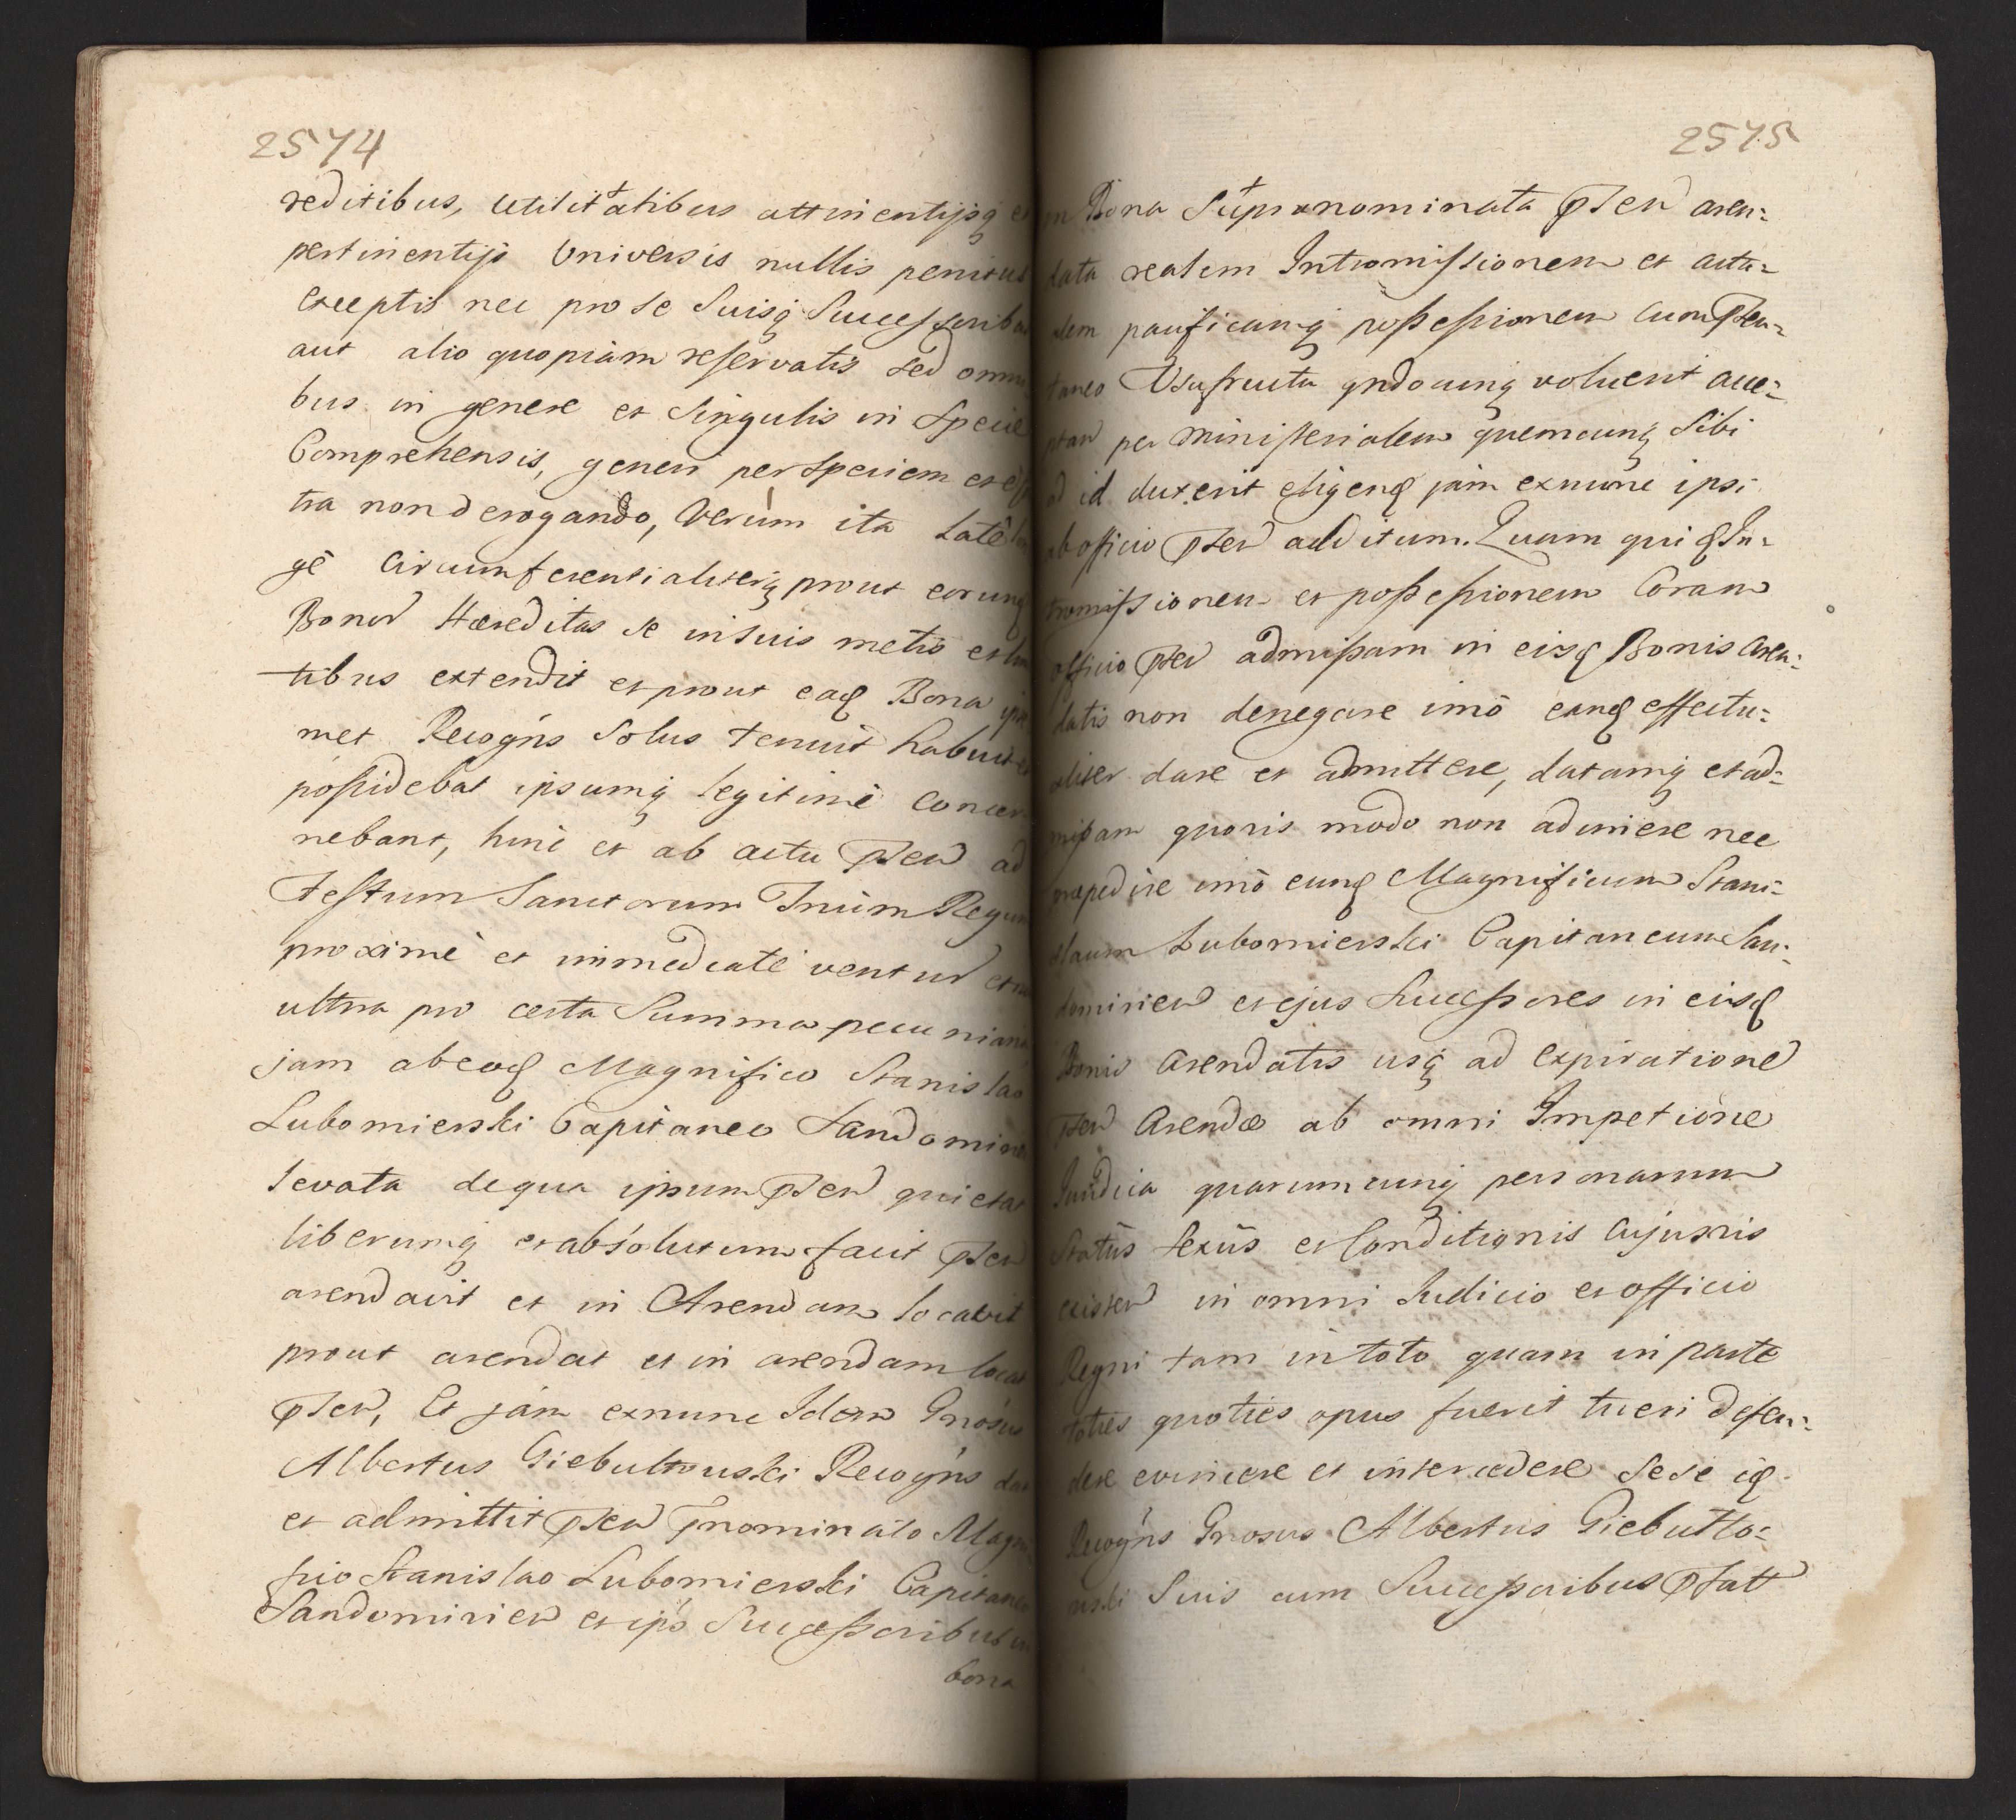 2574
reditibus, utilitatibus attinentijsq̨ et
pertinentijs Universis nullis penitus
exceptis nec pro se Suisq̨ Successoribus
aut alio quopiam reservatis sed omni-
bus in genere et Singulis in Specie
Comprehensis, generi per Speciem et è
tra non derogando, Verùm ita latè
gè Circumferentialiterq̨ prout eorund
Bonor Hæreditas se in suis metis et
tibus extendit et prout eaď Bona
met Recogńs Solus tenuit habuit
possidebat ipsumq̨ legitimè concer
nebant, hinc et ab actu pten̄ ad
Festum Sanctorum Trium Regum
proximè et immediatè ventur
ultra pro certa Summa pecuniaria
jam ab eod Magnifico Stanislao
Lubomierski Capitaneo Sandomirien
levata de qua ipsum pten̄ quietat
liberumq̨ et absolutum facit pten̄
arendavit et in Arendam locavit
prout arendat et in arendam locat
pten̄, Et jam exnunc Idem Gnosus
Albertus Giebultowski Recogńs dat
et admittit pten̄ pnominato Magni-
fico Stanislao Lubomierski Capitaneo
Sandomirien̄ et ips Successoribus in
bona
2575
in Bona Supranominata pten̄ aren-
data realem Intromissionem et actu-
alem pacificamq̨ possessionem cum pten-
taneo Usufructu qndocunq̨ voluerit acce-
ptan̄ per Ministerialem quemcunq̨ Sibi
ad id duxerit eligend jam exnunc ipsi
ab officio pten̄ additum. Quam quid In-
tromissionem et possessionem Coram
officio pten̄ admissam in eisd Bonis aren-
datis non denegare imò eand effectu-
aliter dare et admittere, datamq̨ et ad-
missam quovis modo non adimere nec
præpedire imò eund Magnificum Stani-
slaum Lubomierski Capitaneum San-
domirien̄ et ejus Successores in eisd
Bonis arendatis usq̨ ad expirationē
pten̄ Arendæ ab omni Impetione
Juridica quarumcunq̨ personarum
Status Sexûs et Conditionis cujusvis
existen̄ in omni Judicio et officio
Regni tam in toto quam in parte
toties quoties opus fuerit tueri defen-
dere evincere et intercedere Sese id
Recogńs Gnosus Albertus Giebulto-
wski Suis cum Successoribus ptatt